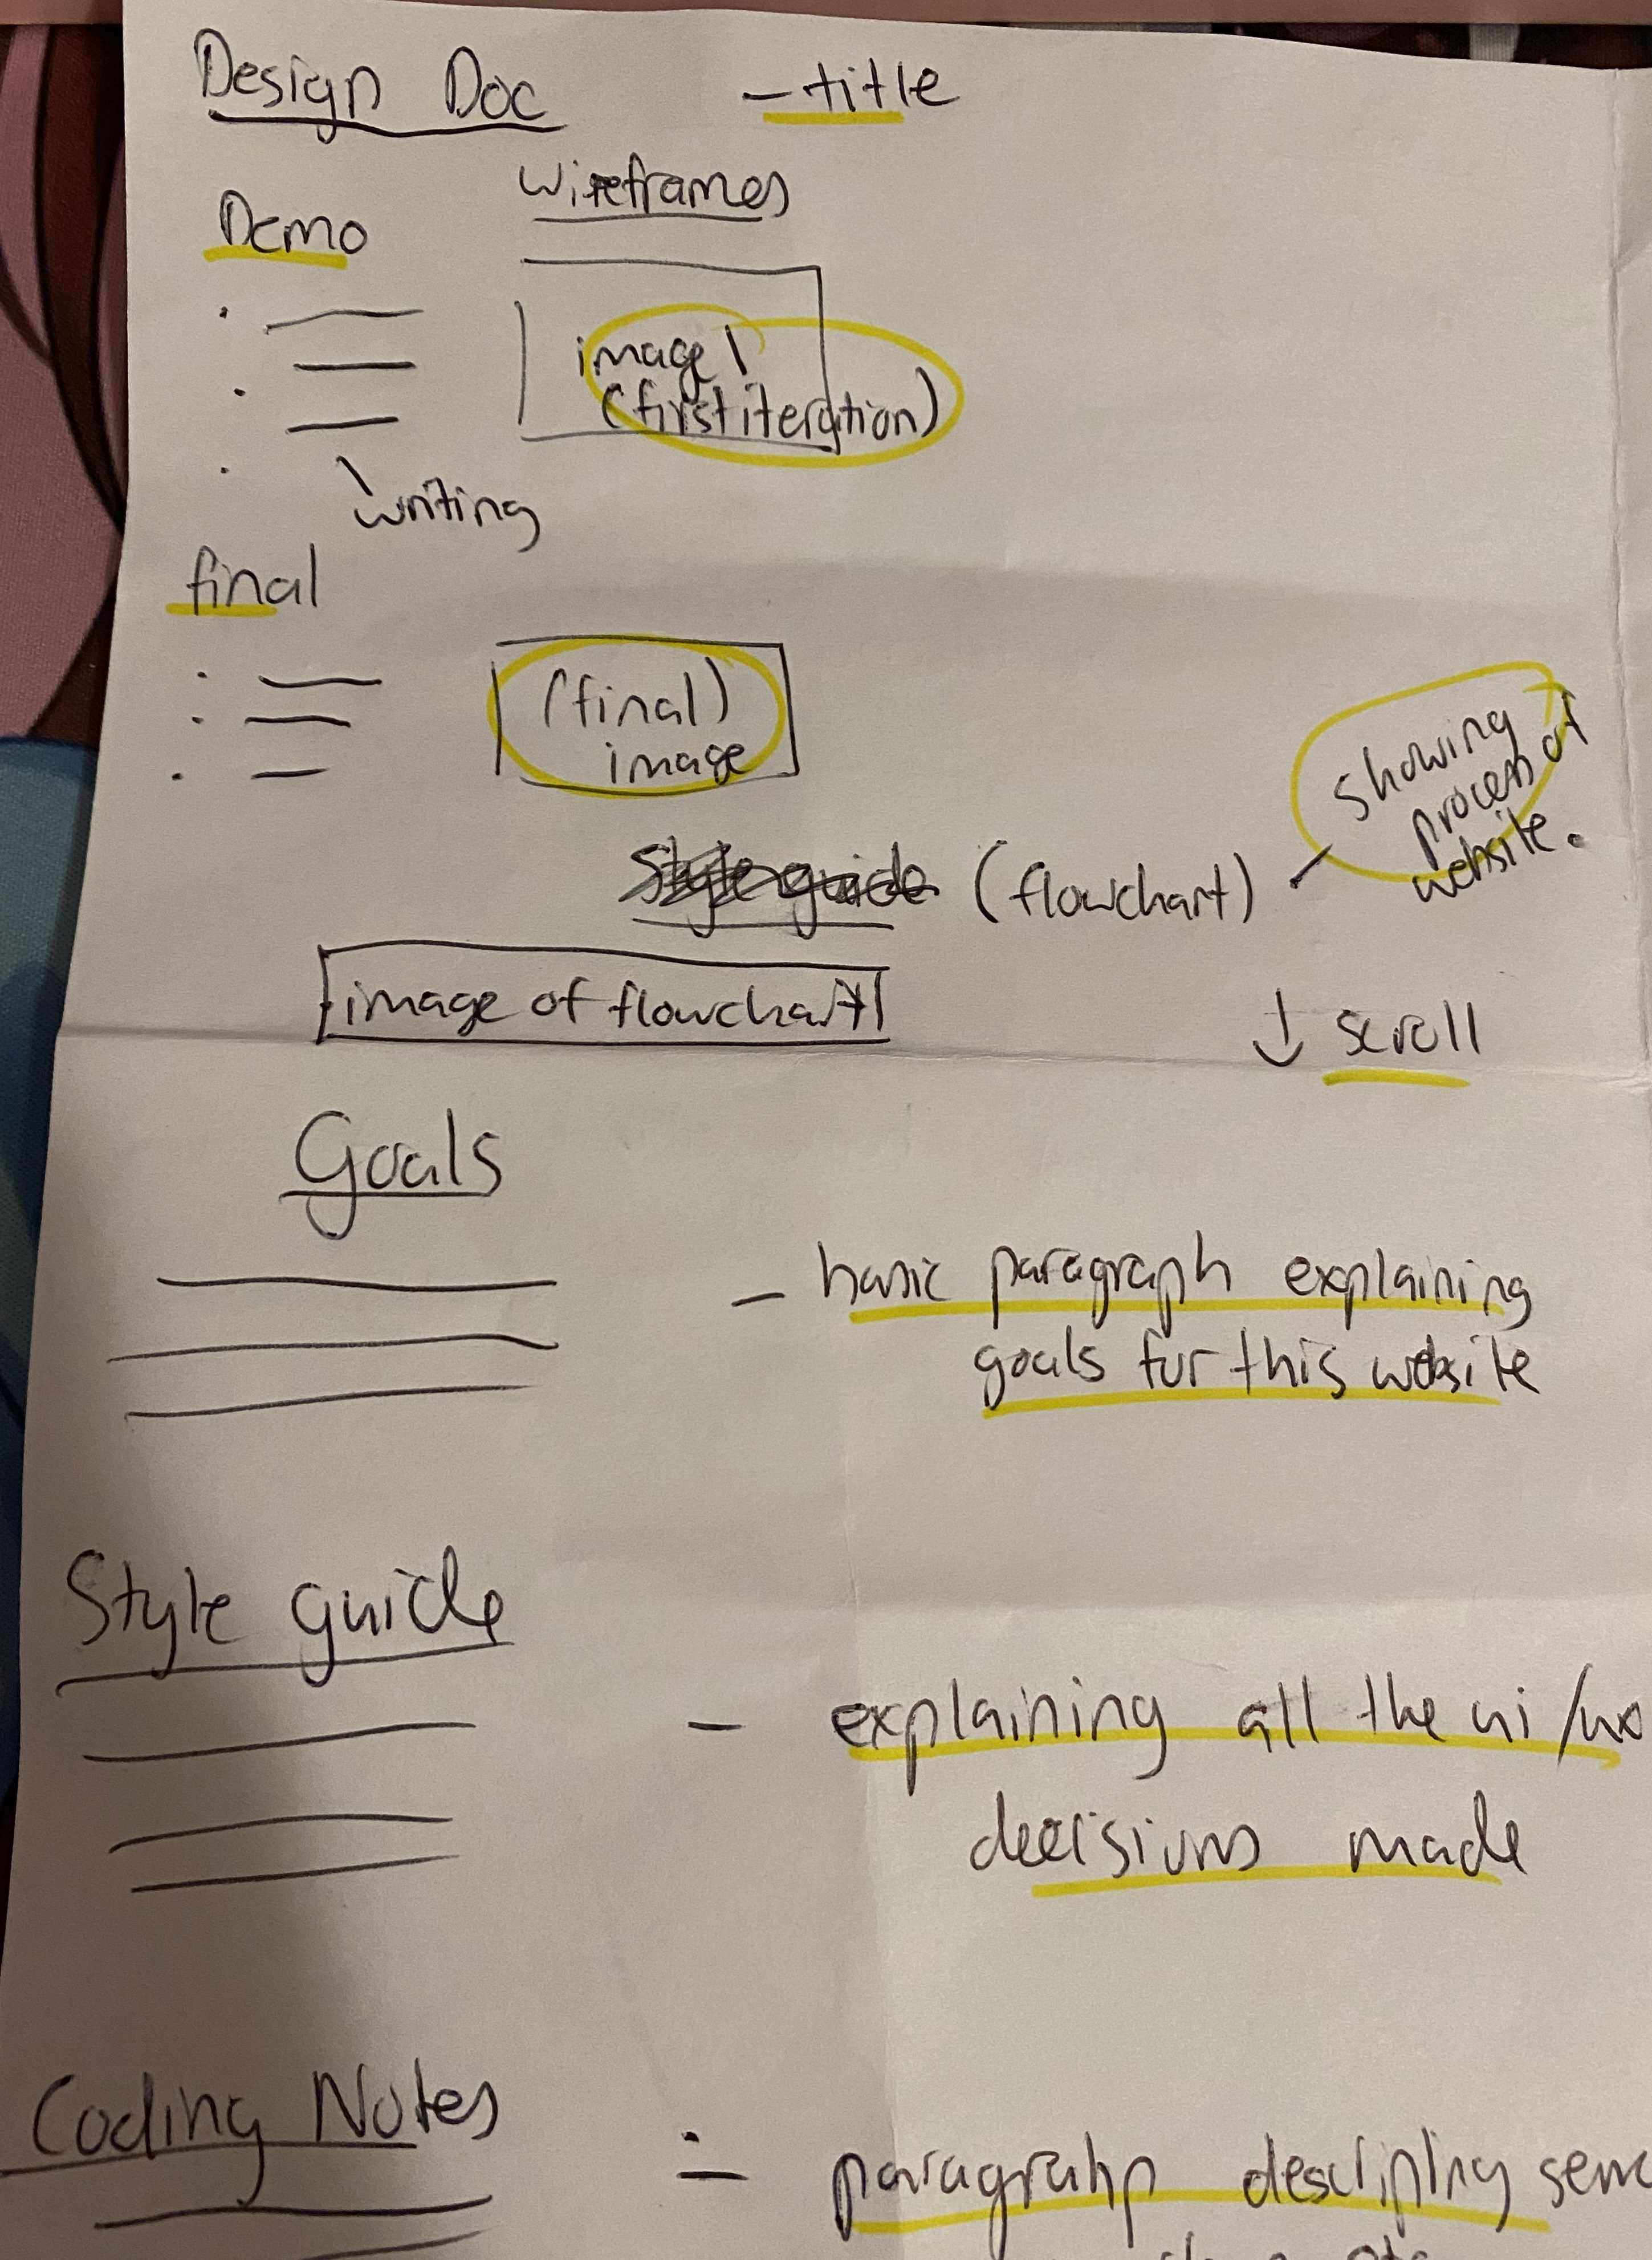 Design Doc - title
wireframes
Demo
image 1
(first iteration)
writing
final
(final)
image
showing
process of
website.
Style guide (flowchart) -
image of flowchart
↓ scroll
Goals
- basic paragraph explaining
goals for this website
Style guide
- explaining all the ui/ux
decisions made
Coding Notes
- paragrahp